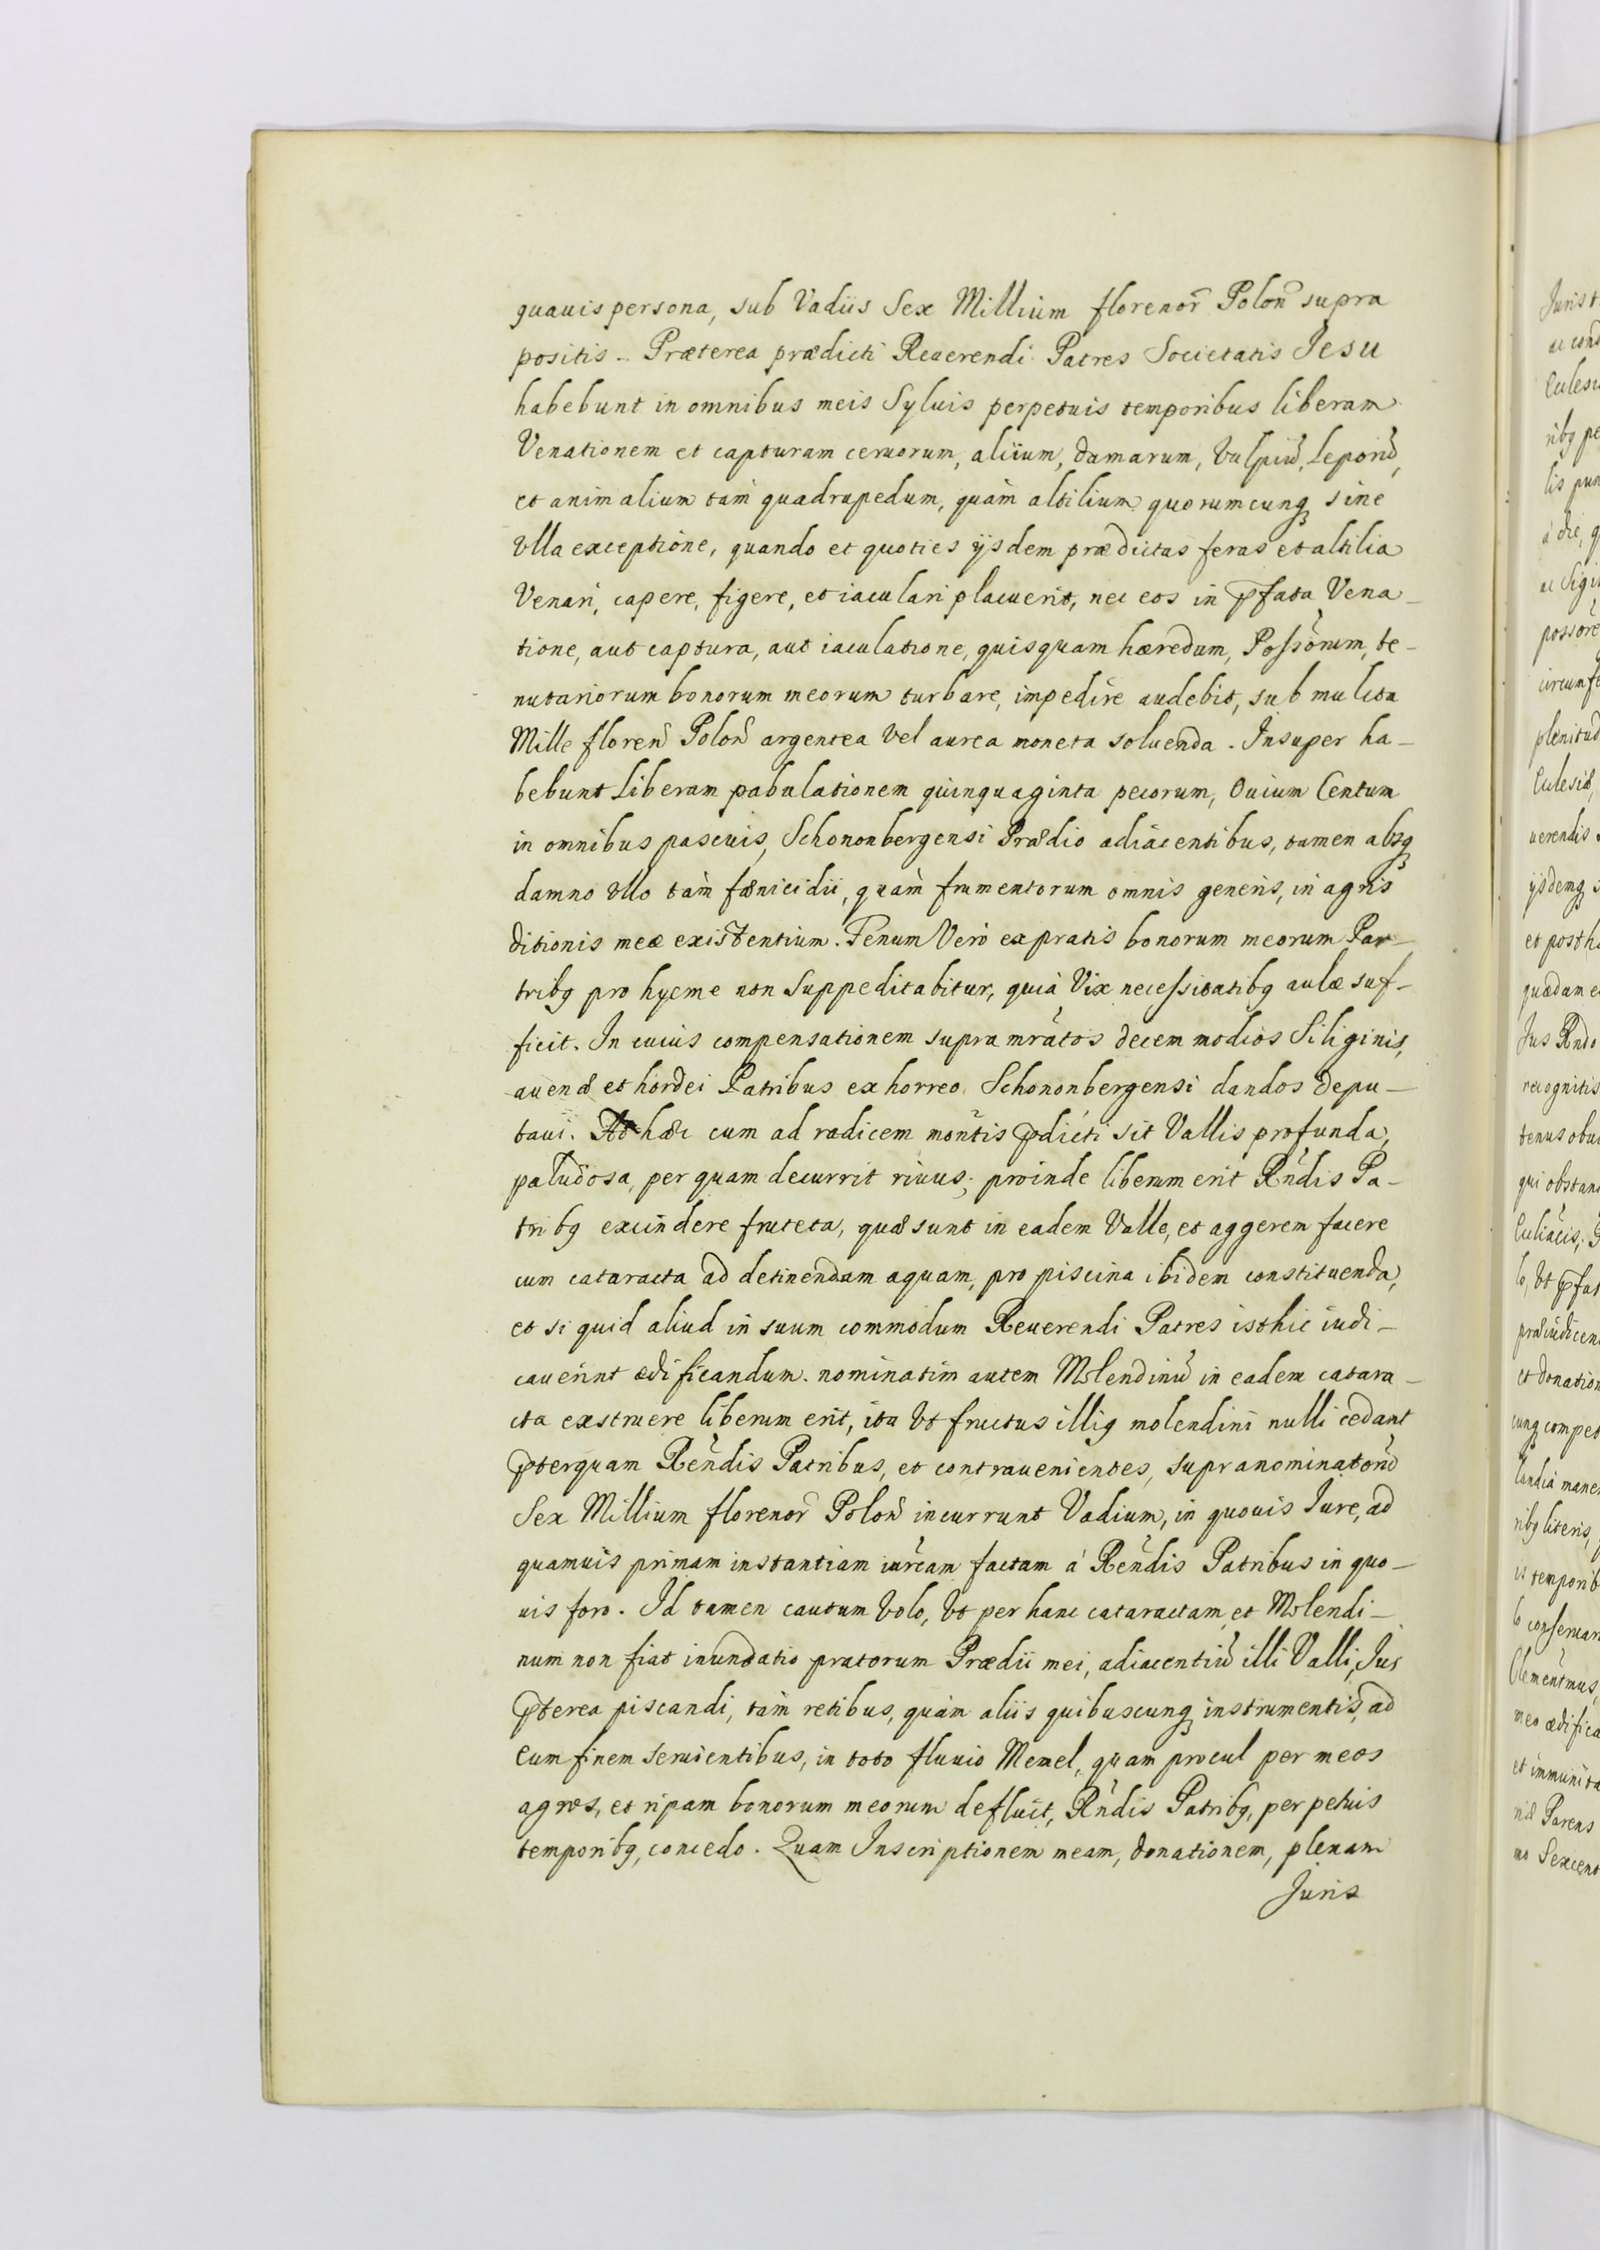 quauis persona, sub Vadiis Sex Millium florenor̃ Polon̄ supra
positis. Præterea prædicti Reuerendi Patres Societatis Jesu
habebunt in omnibus meis Syluis perpetuis temporibus liberam
Venationem et capturam ceruorum, aliium, damarum, Vulpiū, Leporū,
et animalium tàm quadrupedum, quàm altilium quorumcunq̨ sine
Vlla exceptione, quando et quoties ijsdem prædictas feras et altilia
Venari, capere, figere, et iaculari placuerit, nec eos in p̄fata Vena-
tione, aut captura, aut iaculatione, quisquam hæredum, Possõrum, te-
nutariorum bonorum meorum turbare, impedire audebit, sub mulcta
Mille floren̄ Polon̄ argentea Vel aurea moneta soluenda. Insuper ha-
bebunt Liberam pabulationem quinquaginta pecorum, Ouium Centum
in omnibus pascuis, Schononbergensi Prædio adiacentibus, tamen absq̨
damno Vllo tàm fænicidii, quàm frumentorum omnis generis, in agris
ditionis meæ existentium. Fenum Verò ex pratis bonorum meorum Pa-
tribq pro hyeme non Suppeditabitur, quià Vix necessitatibq aulæ suf-
ficit. In cuius compensationem supra mr̃atos decem modios Siliginis,
auenæ et hordei Patribus ex horreo Schononbergensi dandos depu-
taui. Ad hæc cum ad radicem montis p̄dicti sit Vallis profunda,
paludosa, per quam decurrit riuus; proinde liberum erit Rn̄dis Pa-
tribq excindere fruteta, quæ sunt in eadem Valle, et aggerem facere
cum cataracta ad detinendam aquam, pro piscina ibidem constituenda,
et si quid aliud in suum commodum Reuerendi Patres isthic iudi-
cauerint ædificandum. nominatim autem Molendinū in eadem catara-
cta exstruere liberum erit, ita Vt fructus illiq molendini nulli cedant
p̄terquam Ren̄dis Patribus, et contrauenientes, supranominatorū
Sex Millium florenor̃ Polon̄ incurrunt Vadium, in quouis Jure, ad
quamuis primam instantiam iur̃eam factam à Ren̄dis Patribus in quo-
uis foro. Id tamen cautum Volo, Vt per hanc cataractam et Molendi-
num non fiat inundatio pratorum Prædii mei, adiacentiū illi Valli, Jus
p̄terea piscandi, tàm retibus, quàm aliis quibuscunq̨ instrumentis, ad
eum finem seruientibus, in toto fluuio Memel, quam procul per meos
agros, et ripam bonorum meorum defluit, Rn̄dis Patribq, perpetuis
temporibq, concedo. Quam Inscriptionem meam, donationem, plenam
Juris